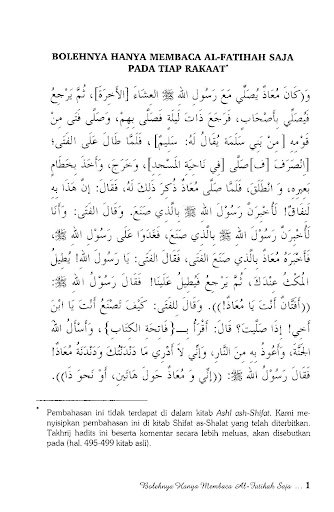 BOLEHNYA HANYA MEMBACA AL-FATIHAH SAJA
PADA TIAP RAKAAT*
وَ(كَانَ مُعَاذٌ يُصَلِّي مَعَ رَسُولِ اللهِ ﷺ العِشَاءَ [الآخِرَةَ]، ثُمَّ يَرْجِعُ
فَيُصَلِّي بِأَصْحَابِهِ، فَرَجَعَ ذَاتَ لَيْلَةٍ فَصَلَّى بِهِمْ، وَصَلَّى فَتًى مِنْ
قَوْمِهِ [مِنْ بَنِي سَلَمَةَ يُقَالُ لَهُ: سُلَيْمٌ]، فَلَمَّا طَالَ عَلَى الفَتَى؛
[انْصَرَفَ [فَـ]صَلَّى [فِي نَاحِيَةِ المَسْجِدِ]، وَخَرَجَ، وَأَخَذَ بِخِطَامِ
بَعِيرِهِ، وَ انْطَلَقَ، فَلَمَّا صَلَّى مُعَاذٌ ذُكِرَ ذَلِكَ لَهُ، فَقَالَ: إِنَّ هَذَا بِهِ
لَنِفَاقٌ! لَأُخْبِرَنَّ رَسُولَ اللهِ ﷺ بِالَّذِي صَنَعَ. وَقَالَ الفَتَى: وَأَنَا
لَأُخْبِرَنَّ رَسُولَ اللهِ ﷺ بِالَّذِي صَنَعَ، فَغَدَوَا عَلَى رَسُولِ اللهِ ﷺ،
فَأَخْبَرَهُ مُعَاذٌ بِالَّذِي صَنَعَ الفَتَى، فَقَالَ الفَتَى: يَا رَسُولَ اللهِ! يُطِيلُ
المُكْثَ عِنْدَكَ، ثُمَّ يَرْجِعُ فَيُطِيلُ عَلَيْنَا! فَقَالَ رَسُولُ اللهِ ﷺ:
((أَفَتَّانٌ أَنْتَ يَا مُعَاذُ!)). وَقَالَ لِلفَتَى: كَيْفَ تَصْنَعُ أَنْتَ يَا ابْنَ
أَخِي! إِذَا صَلَّيْتَ؟ قَالَ: أَقْرَأُ بِـ{فَاتِحَةِ الكِتَابِ}، وَأَسْأَلُ اللهَ
الجَنَّةَ، وَأَعُوذُ بِهِ مِنَ النَّارِ، وَإِنِّي لَا أَدْرِي مَا دَنْدَنَتُكَ وَدَنْدَنَةُ مُعَاذٍ!
فَقَالَ رَسُولُ اللهِ ﷺ: ((إِنِّي وَ مُعَاذٌ حَوْلَ هَاتَيْنِ، أَوْ نَحْوَ ذَا)).
* Pembahasan ini tidak terdapat di dalam kitab Ashl ash-Shifat. Kami me-
nyisipkan pembahasan ini di kitab Shifat as-Shalat yang telah diterbitkan.
Takhrij hadits ini beserta komentar secara lebih meluas, akan disebutkan
pada (hal. 495-499 kitab asli).
Bolehnya Hanya Membaca Al-Fatihah Saja ... 1